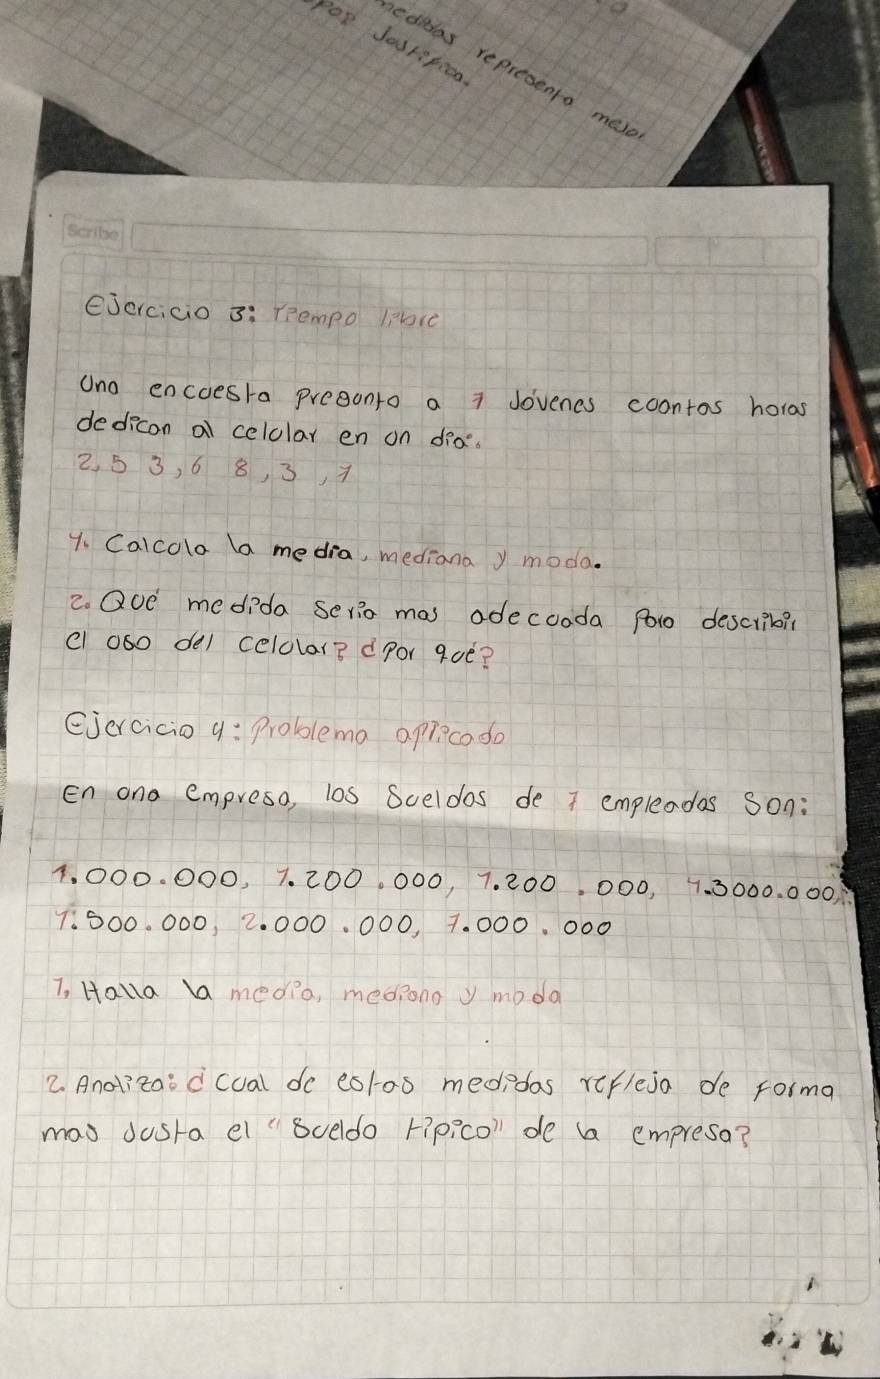 medidas representa mejor
por Justifica.
Scribe
Ejercicio 3: Tiempo libre
Una encuesta pregunto a 7 Jóvenes cuantas horas
dedican al celular en un día.
2, 5 3, 6 8, 3, 7
1. Calcula la media, mediana y moda.
2. Qué medida seria mas adecuada para describir
el uso del celular? ¿Por qué?
Ejercicio 4: Problema aplicado
En una empresa, los Sueldos de 7 empleados Son:
1.000.000, 1.200.000, 1.200.000, 1.3000.000,
1.500.000, 2.000.000, 1.000.000
1. Halla la media, mediana y moda
2. Analiza: ¿cual de estas medidas refleja de forma
mas Justa el "Sueldo tipico" de la empresa?